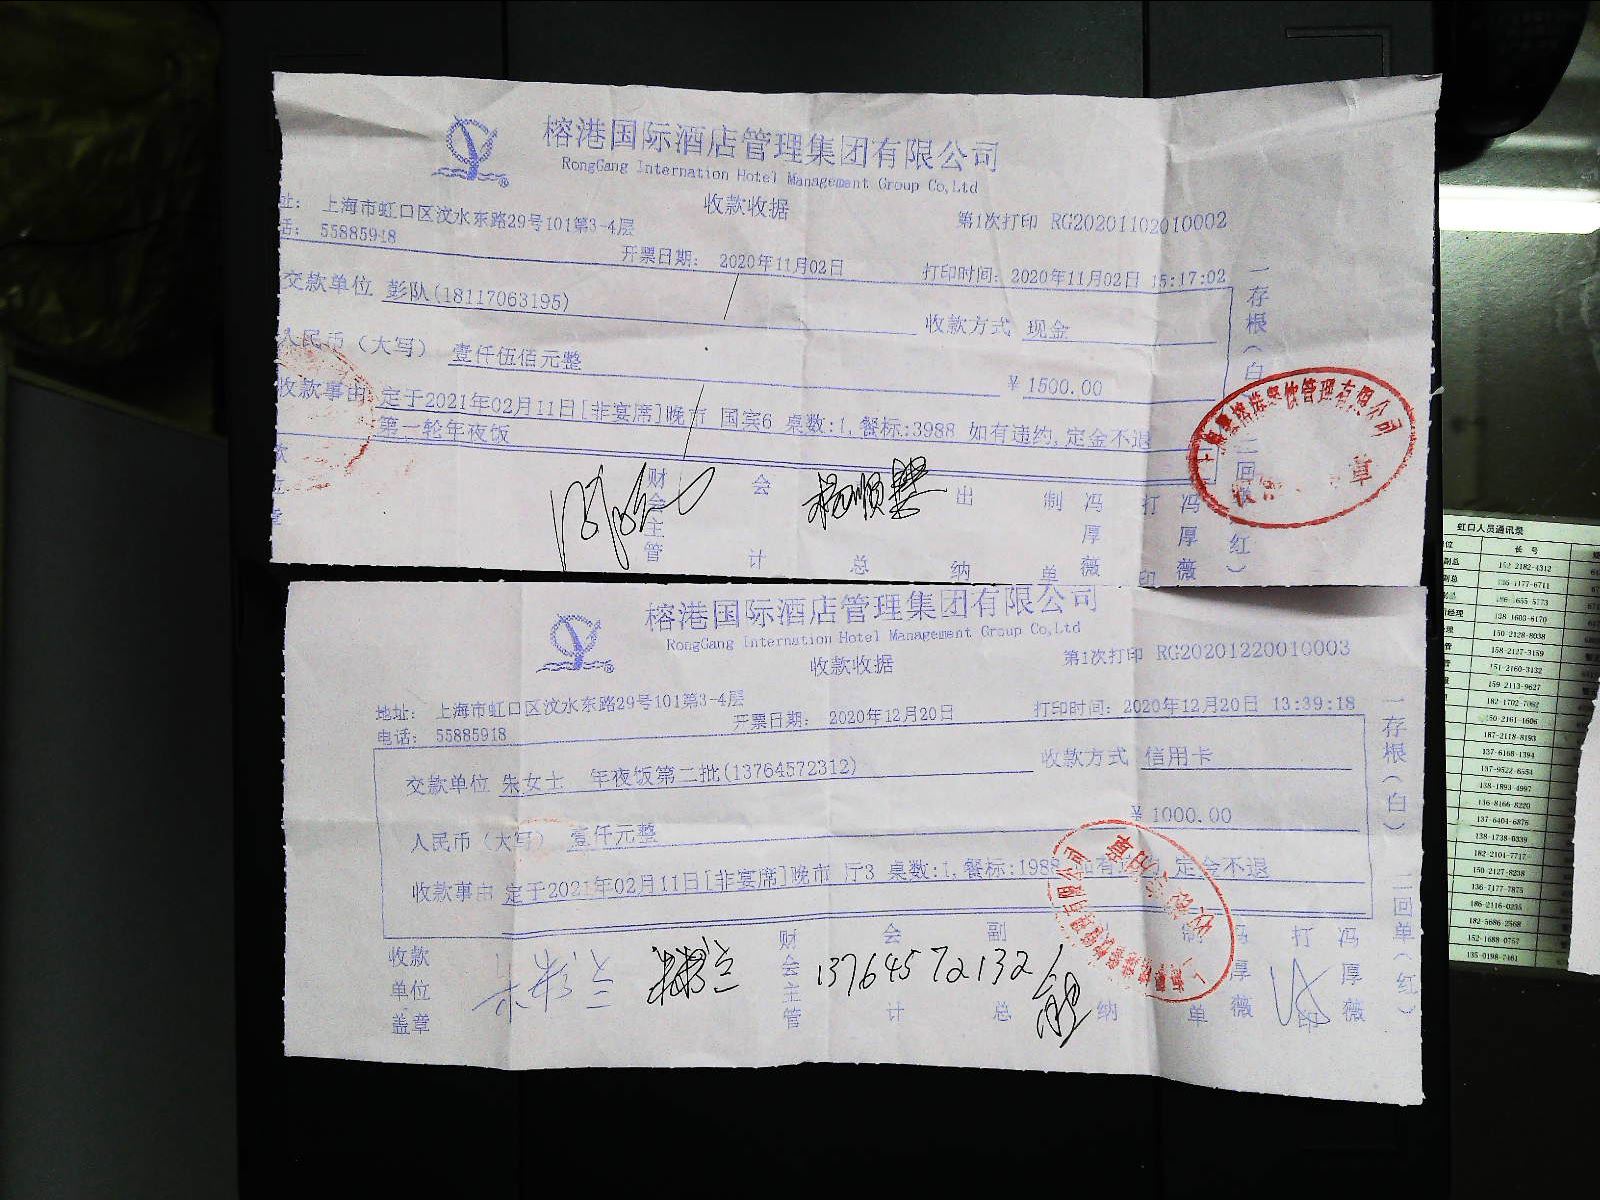 榕港国际酒店管理集团有限公司
RongGang Internation Hotel Management Group Co,Ltd
收款收据
第1次打印 RG20201102010002
址: 上海市虹口区汶水东路29号101第3-4层
话: 55885918
开票日期: 2020年11月02日
打印时间: 2020年11月02日 15:17:02
交款单位 彭队(18117063195)
收款方式 现金
人民币(大写) 壹仟伍佰元整
¥1500.00
收款事由 定于2021年02月11日[非宴席]晚市 国宾6 桌数:1,餐标:3988 如有违约,定金不退
第一轮年夜饭
财会主管
会计
总
出纳
制单
冯厚薇
打印
冯厚薇
一存根(白)
二回单(红)
榕港国际酒店管理集团有限公司
RongGang Internation Hotel Management Group Co,Ltd
收款收据
第1次打印 RG20201220010003
地址: 上海市虹口区汶水东路29号101第3-4层
电话: 55885918
开票日期: 2020年12月20日
打印时间: 2020年12月20日 13:39:18
交款单位 朱女士 年夜饭第二批(13764572312)
收款方式 信用卡
人民币(大写) 壹仟元整
¥1000.00
收款事由 定于2021年02月11日[非宴席]晚市 厅3 桌数:1,餐标:1988 有违约,定金不退
收款单位盖章
财会主管
会计
副总
纳
制单
冯厚薇
打印
冯厚薇
13764572132
一存根(白)
二回单(红)
虹口人员通讯录
长 号
152-2182-4312
136-1177-6711
138-1603-6170
150-2128-8038
158-2127-3159
151-2160-3132
159-2113-9627
182-1702-7082
150-2161-1606
187-2118-8193
137-6168-1394
137-9522-8554
138-1893-4997
136-8166-8220
137-6404-6876
138-1738-0339
182-2104-7717
150-2127-8238
136-7177-7875
186-2116-0235
182-5686-2568
152-1688-0757
135-0198-7461